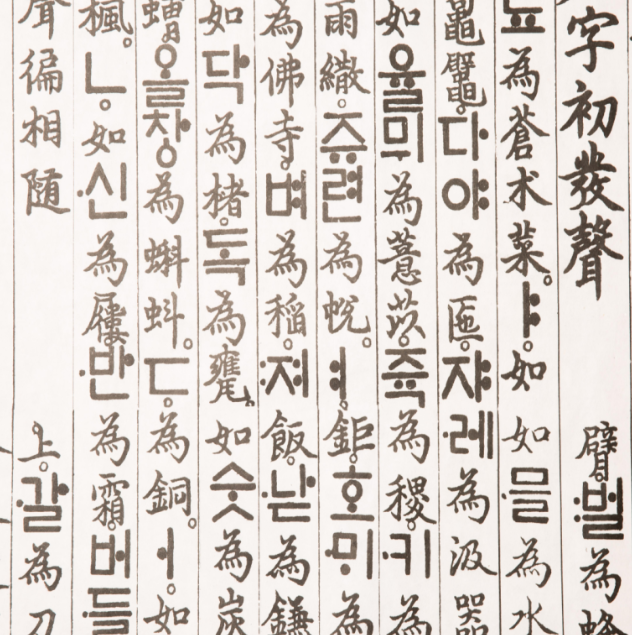 字初發聲　臂。:벌為蜂
됴為蒼朮菜。ㅑ。如　如·믈為水
鼊。다야為匜。쟈　·레為汲器
如율믜為薏苡。쥭　為稷。·키為
雨繖。쥬련為帨。ㅕ。　鉅。호·미為
為佛寺。·벼為稻。:져　飯。·낟為鎌
如닥為楮。독為甕。　如숫為炭
올창為蝌蚪。ㄷ。　為銅。ㅣ。如
楓。ㄴ。如·신為屨。·반　為霜。버·들
聲徧相隨　上。·갈為刀